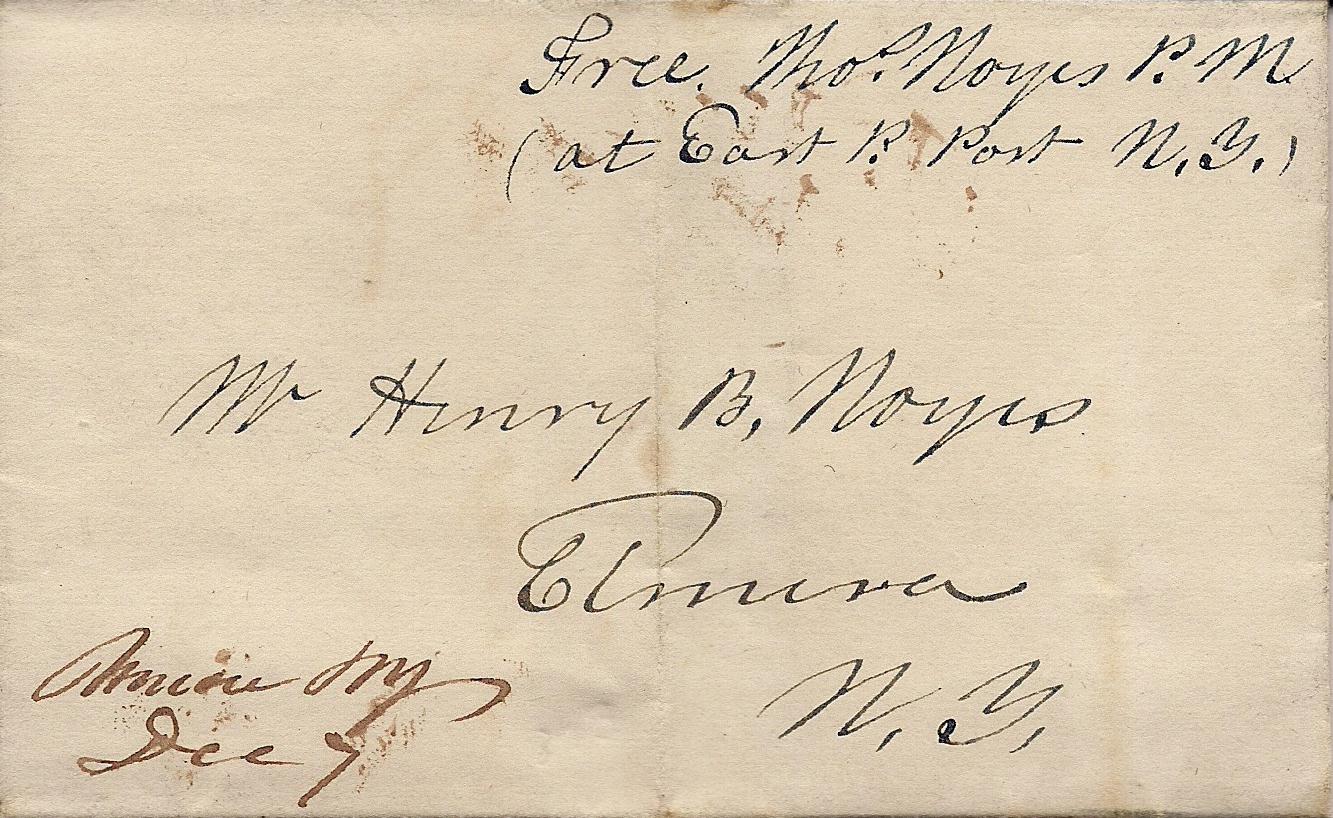 Free. Thos. Noyes P. M
(at East P. Post N. Y.)
Mr Henry B, Noyes
Elmira
N. Y.
NY
Dec 7